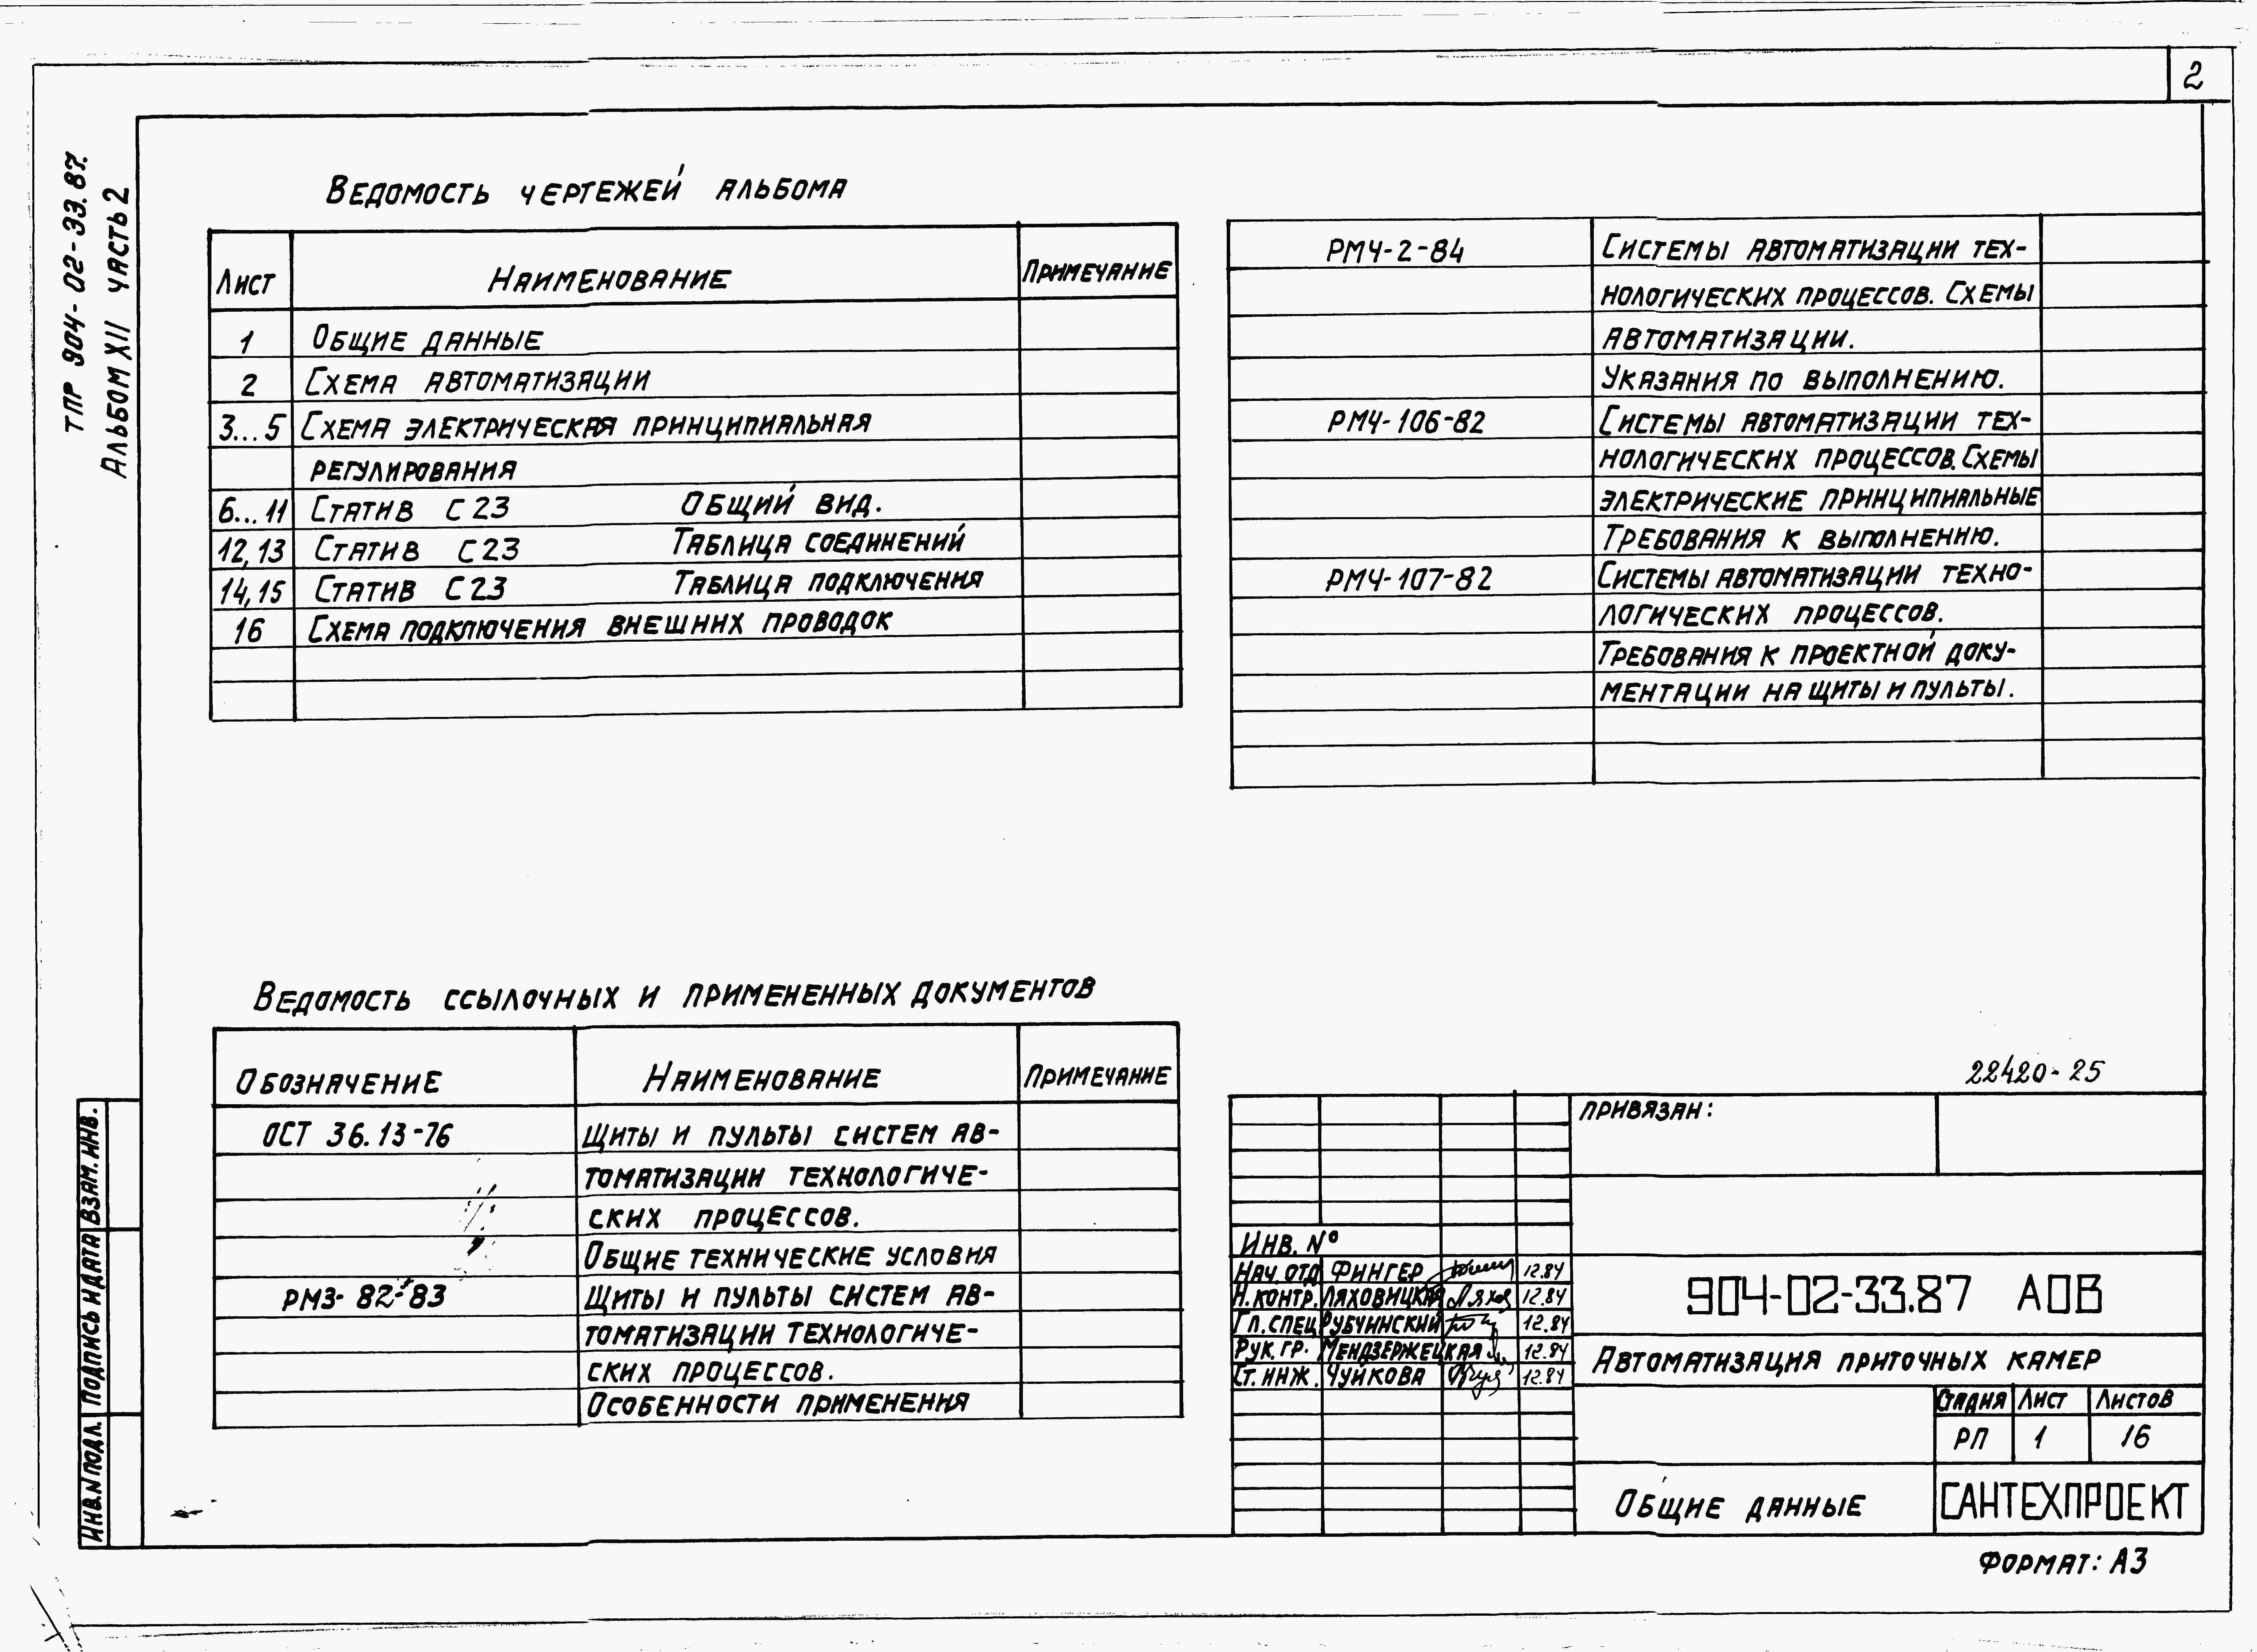 2
ТПР 904-02-33.87.
Альбом XII часть 2
Ведомость чертежей альбома
Лист Наименование Примечание
1 Общие данные
2 Схема автоматизации
3...5 Схема электрическая принципиальная
регулирования
6...11 Статив С23 Общий вид.
12,13 Статив С23 Таблица соединений
14,15 Статив С23 Таблица подключения
16 Схема подключения внешних проводок
РМ4-2-84 Системы автоматизации тех-
нологических процессов. Схемы
автоматизации.
Указания по выполнению.
РМ4-106-82 Системы автоматизации тех-
нологических процессов. Схемы
электрические принципиальные
Требования к выполнению.
РМ4-107-82 Системы автоматизации техно-
логических процессов.
Требования к проектной доку-
ментации на щиты и пульты.
Ведомость ссылочных и примененных документов
Обозначение Наименование Примечание
ОСТ 36.13-76 Щиты и пульты систем ав-
томатизации технологиче-
ских процессов.
Общие технические условия
РМ3-82-83 Щиты и пульты систем ав-
томатизации технологиче-
ских процессов.
Особенности применения
22420-25
Привязан:
Инв. №
Нач. отд Фингер 12.84
Н. контр. Ляховицкая 12.84
Гл. спец Рубчинский 12.84
Рук. гр. Мендзержецкая 12.84
Ст. инж. Чуйкова 12.84
904-02-33.87 АОВ
Автоматизация приточных камер
Стадия Лист Листов
РП 1 16
Общие данные
САНТЕХПРОЕКТ
Формат: А3
Инв.N подл. Подпись и дата Взам. инв.